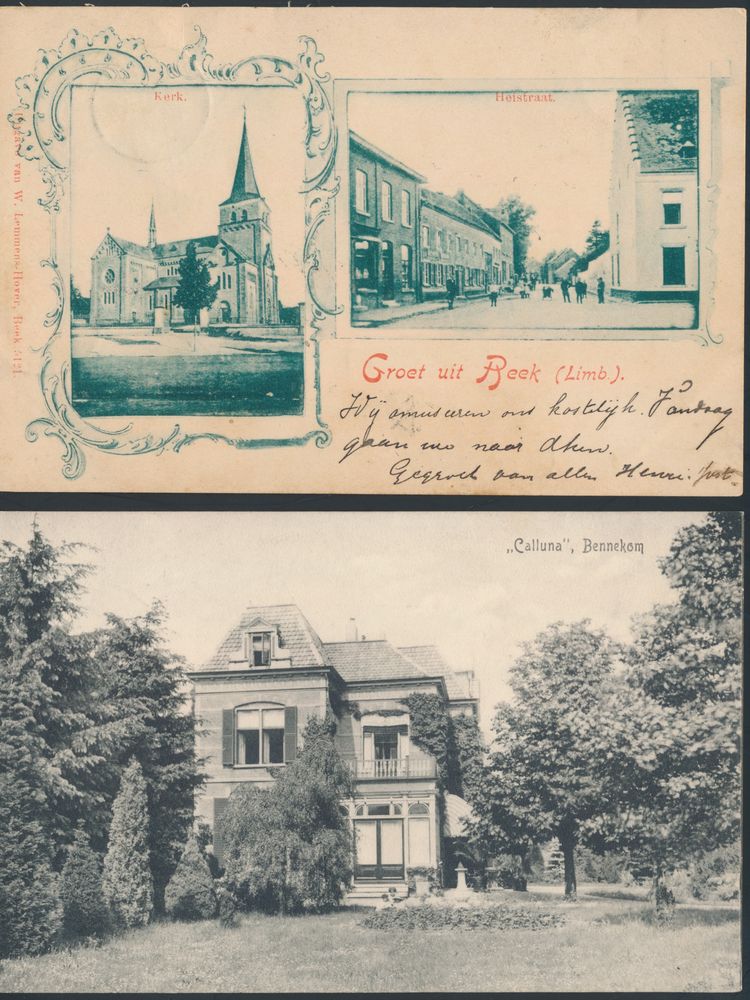 Kerk.
Heistraat.
Uitgave van W. Lemmens-Hover, Beek 5121
Groet uit Beek (Limb.).
Wij amuseren ons kostelijk. Vandaag
gaan we naar Aken.
Gegroet van allen Henri.
„Calluna”, Bennekom